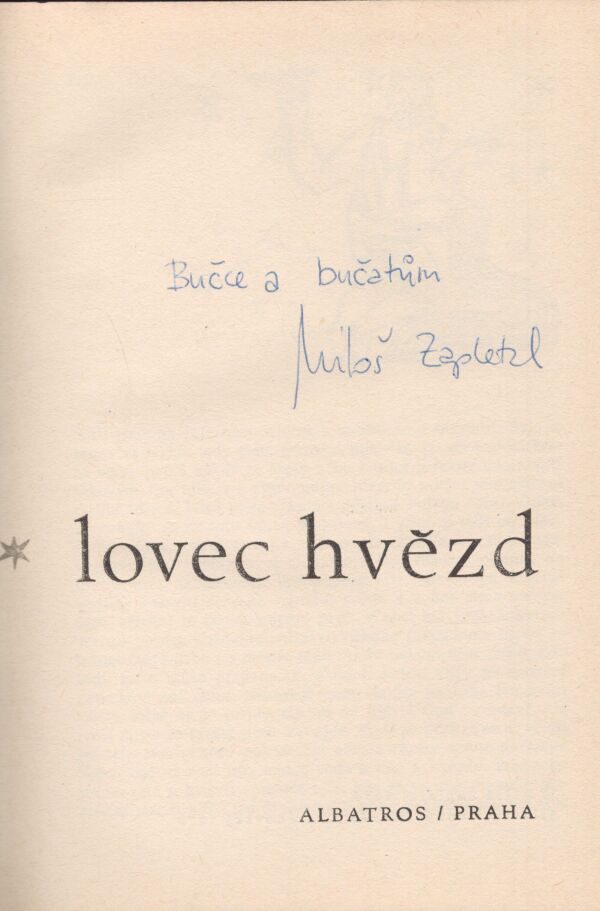 Bučce a bučatům
Miloš Zapletal
lovec hvězd
ALBATROS / PRAHA